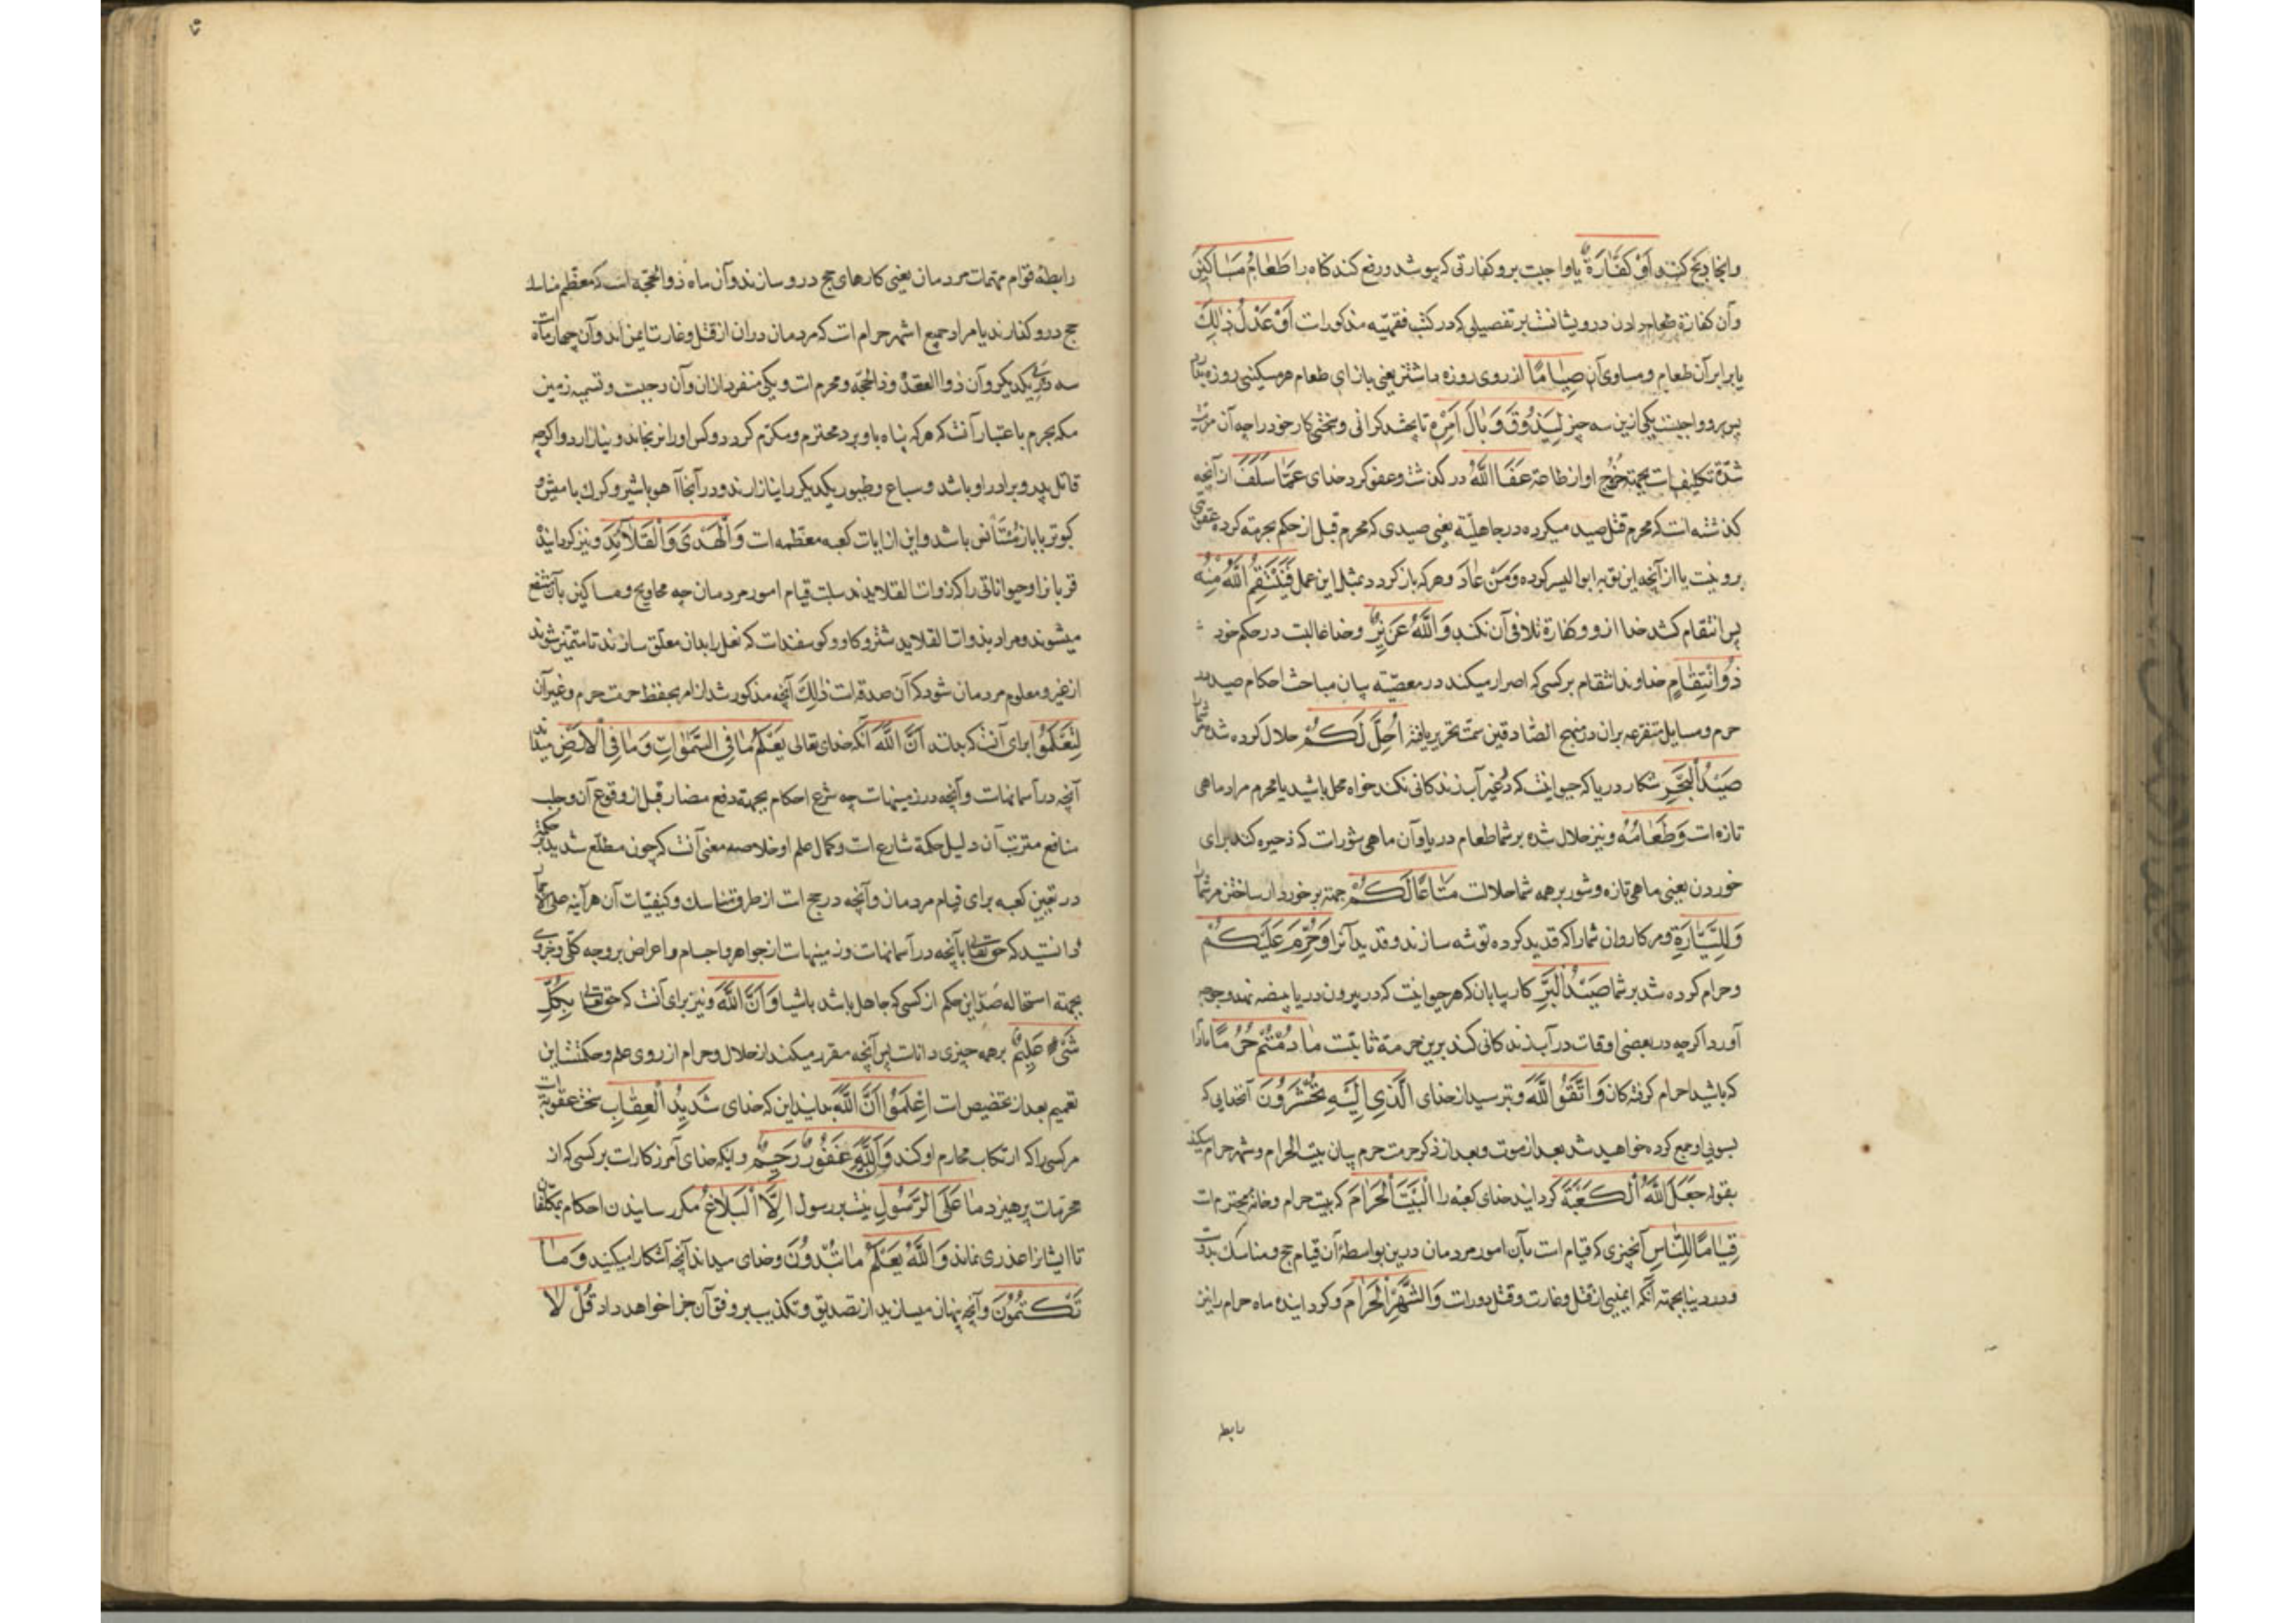 وانجا ذبح کنند اَوْ کَفَّارَةٌ یا واجبست برو کفارتی که بپوشد و رفع کند کناه را طَعَامُ مَسَاکِینَ
وآن کفارة طعام دادن درویشانست بر تفصیلی که در کتب فقهیّه مذکورات اَوْ عَدْلُ ذٰلِکَ
یا برابر آن طعام و مساوی آن صِیَامًا از روی روزه داشتن یعنی بازای طعام هر مسکینی روزه بدارد
پس برو واجبست یکی ازین سه چیز لِیَذُوقَ وَبَالَ اَمْرِهِ تا بچشد کرانی و سختی کار خود را چه آن مرتبت
شدّة تکلیف است بجهة خروج او از طاعة عَفَا اللّٰهُ در کذشت و عفو کرد خدای عَمَّا سَلَفَ از آنچه
کذشته است که محرم قتل صید میکرده در جاهلیّة یعنی صیدی که محرم قبل از حکم بحرمة کرده عقوبتی
برو نیست یا از آنچه این نوبه ابوالیسر کوده وَمَنْ عَادَ و هرکه باز کردد بمثل این عمل فَیَنْتَقِمُ اللّٰهُ مِنْهُ
پس انتقام کشد خدا ازو و کفارة تلافی آن نکند وَاللّٰهُ عَزِیزٌ و خدا غالبست در حکم خود
ذُو انْتِقَامٍ خداوند انتقام بر کسی که اصرار میکند در معصیّة بیان مباحث احکام صید در
حرم و مسایل متفرعه بران در منهج الصّادقین سمت تحریر یافته اُحِلَّ لَکُمْ حلال کرده شده مر شما را
صَیْدُ الْبَحْرِ شکار دریا که حیوانیست که در غیر آب زندکانی نکند خواه محل باشید یا محرم مراد ماهی
تازه است وَطَعَامُهُ و نیز حلال شده بر شما طعام دریا و آن ماهی شورات که ذخیره کنند برای
خوردن یعنی ماهی تازه و شور بر همه شما حلالست مَتَاعًا لَکُمْ جهة برخوردار ساختن مر شما را
وَلِلسَّیَّارَةِ و مر کاروان شما را که قدید کرده توشه سازند و قدید آنرا وَحُرِّمَ عَلَیْکُمْ
و حرام کرده شد بر شما صَیْدُ الْبَرِّ کار بیابان که هر حیوانیست که در بیرون دریا بیضه نهد و چوجه
آورد اکرچه در بعضی اوقات در آب زندکانی کند برین حرمة ثابتست مَا دُمْتُمْ حُرُمًا مادام
که باشید احرام کرفته کان وَاتَّقُوا اللّٰهَ و بترسید از خدای الَّذِی اِلَیْهِ تُحْشَرُونَ آنخدایی که
بسوی او جمع کرده خواهید شد بعد از موت و بعد از ذکر حرمت حرم بیان بیت الحرام و شهر حرام میکند
بقوله جَعَلَ اللّٰهُ الْکَعْبَةَ کردانید خدای کعبه را الْبَیْتَ الْحَرَامَ که بیت حرام و خانۀ محترم است
قِیَامًا لِلنَّاسِ آنچیزی که قیام است بآن امور مردمان در دین بواسطۀ آن قیام حج و مناسک بدوست
و در دنیا بجهة آنکه ایمنی از قتل و غارت و قتل بدورات وَالشَّهْرَ الْحَرَامَ و کردانیده ماه حرام را نیز
رابطه
رابطۀ قوّام مهمات مردمان یعنی کارهای حج درو سازند و آن ماه ذوالحجّه است که معظم مناسک
حج درو کذارند یا مراد جمیع اشهر حرام است که مردمان دران از قتل و غارت ایمن اند و آن چهار ماه است
سه در پی یکدیکر و آن ذو القعدة و ذالحجّه و محرم است و یکی منفرد ازان و آن رجبست و تسمیه زمین
مکه بحرم باعتبار آنست که هرکه پناه باو برد محترم و مکرّم کردد و کس او را نرنجاند و نیازارد و اکرچه
قاتل پدر و برادر او باشد و سباع و طیور یکدیکر را نیازارند و در آنجا آهو با شیر و کرک با میش و
کبوتر با باز مُسْتَأْنِس باشد و این از ایات کعبه معظمه است وَالْهَدْیَ وَالْقَلَائِدَ و نیز کردانیده
قربانرا و حیواناتی را که ذوات القلایدند سبب قیام امور مردمان چه محاویج و مساکین بآن منتفع
میشوند و مراد بذوات القلاید شتر و کاو و کوسفندات که نعل را بدان معلّق سازند تا متمیّز شوند
از غیر و معلوم مردمان شود که آن صدقه است ذٰلِکَ آنچه مذکور شد از امر بحفظ حرمت حرم و غیر آن
لِتَعْلَمُوا برای آنست که بدانید اَنَّ اللّٰهَ آنکه خدای تعالی یَعْلَمُ مَا فِی السَّمٰوَاتِ وَمَا فِی الْاَرْضِ میداند
آنچه در آسمانهات و آنچه در زمینهات چه شرع احکام بجهة دفع مضار قبل از وقوع آن و جلب
منافع مترتب آن دلیل حکمة شارع است و کمال علم او خلاصه معنی آنست که چون مطّلع شدید بر حکمة
در تعیین کعبه برای قیام مردمان و آنچه در حج است از طرق مناسک و کیفیّات آن هر آینه علی الاجمال
دانستید که حقتعالی بآنچه در آسمانهات و زمینهات از جواهر و اجسام و اعراض بر وجه کلّی و جزوی
بجهة استحاله صدور این حکم از کسی که جاهل باشد باشیا وَاَنَّ اللّٰهَ و نیز برای آنست که حقتعالی بِکُلِّ
شَیْءٍ عَلِیمٌ بر همه چیزی داناست پس آنچه مقرر میکند از حلال و حرام از روی علم و حکمتست این
تعمیم بعد از تخصیص است اِعْلَمُوا اَنَّ اللّٰهَ بدانید این که خدای شَدِیدُ الْعِقَابِ سخت عقوبت است
مر کسی را که ارتکاب محارم او کند وَاَنَّ اللّٰهَ غَفُورٌ رَحِیمٌ و اینکه خدای آمرزکارات بر کسی که از
محرّمات پرهیزد مَا عَلَی الرَّسُولِ نیست بر رسول اِلَّا الْبَلَاغُ مکر رسانیدن احکام بمکلّفان
تا ایشانرا عذری نماند وَاللّٰهُ یَعْلَمُ مَا تُبْدُونَ و خدای میداند آنچه آشکارا میکنید وَمَا
تَکْتُمُونَ و آنچه پنهان میسازید از تصدیق و تکذیب بر وفق آن جزا خواهد داد قُلْ لَا